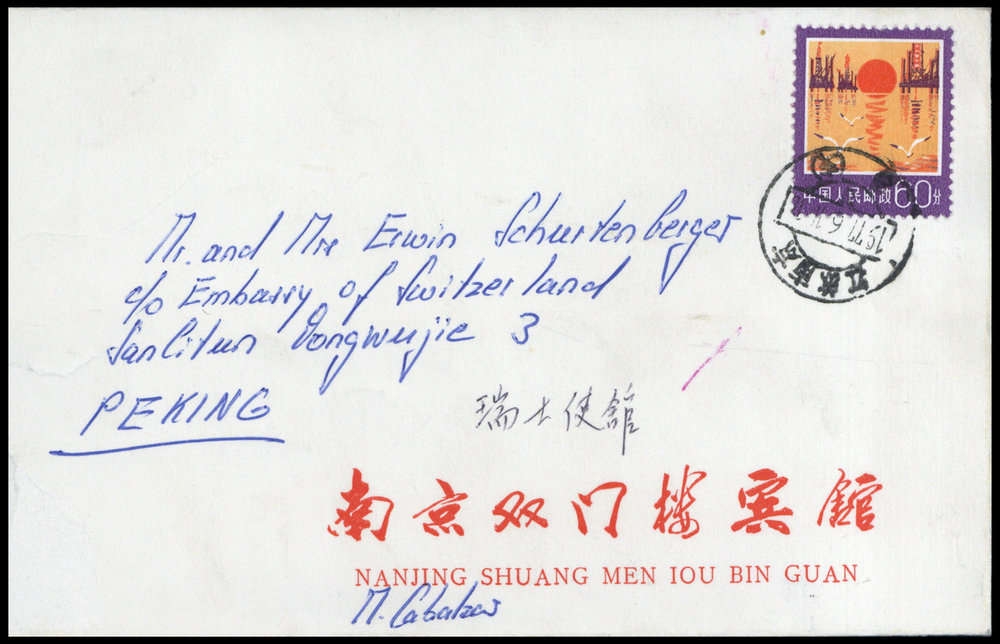 中国人民邮政 60分
江苏南京
Mr. and Mrs Erwin Schurtenberger
c/o Embassy of Switzerland
Sanlitun Dongwujie 3
PEKING
瑞士使館
南京双门楼宾館
NANJING SHUANG MEN IOU BIN GUAN